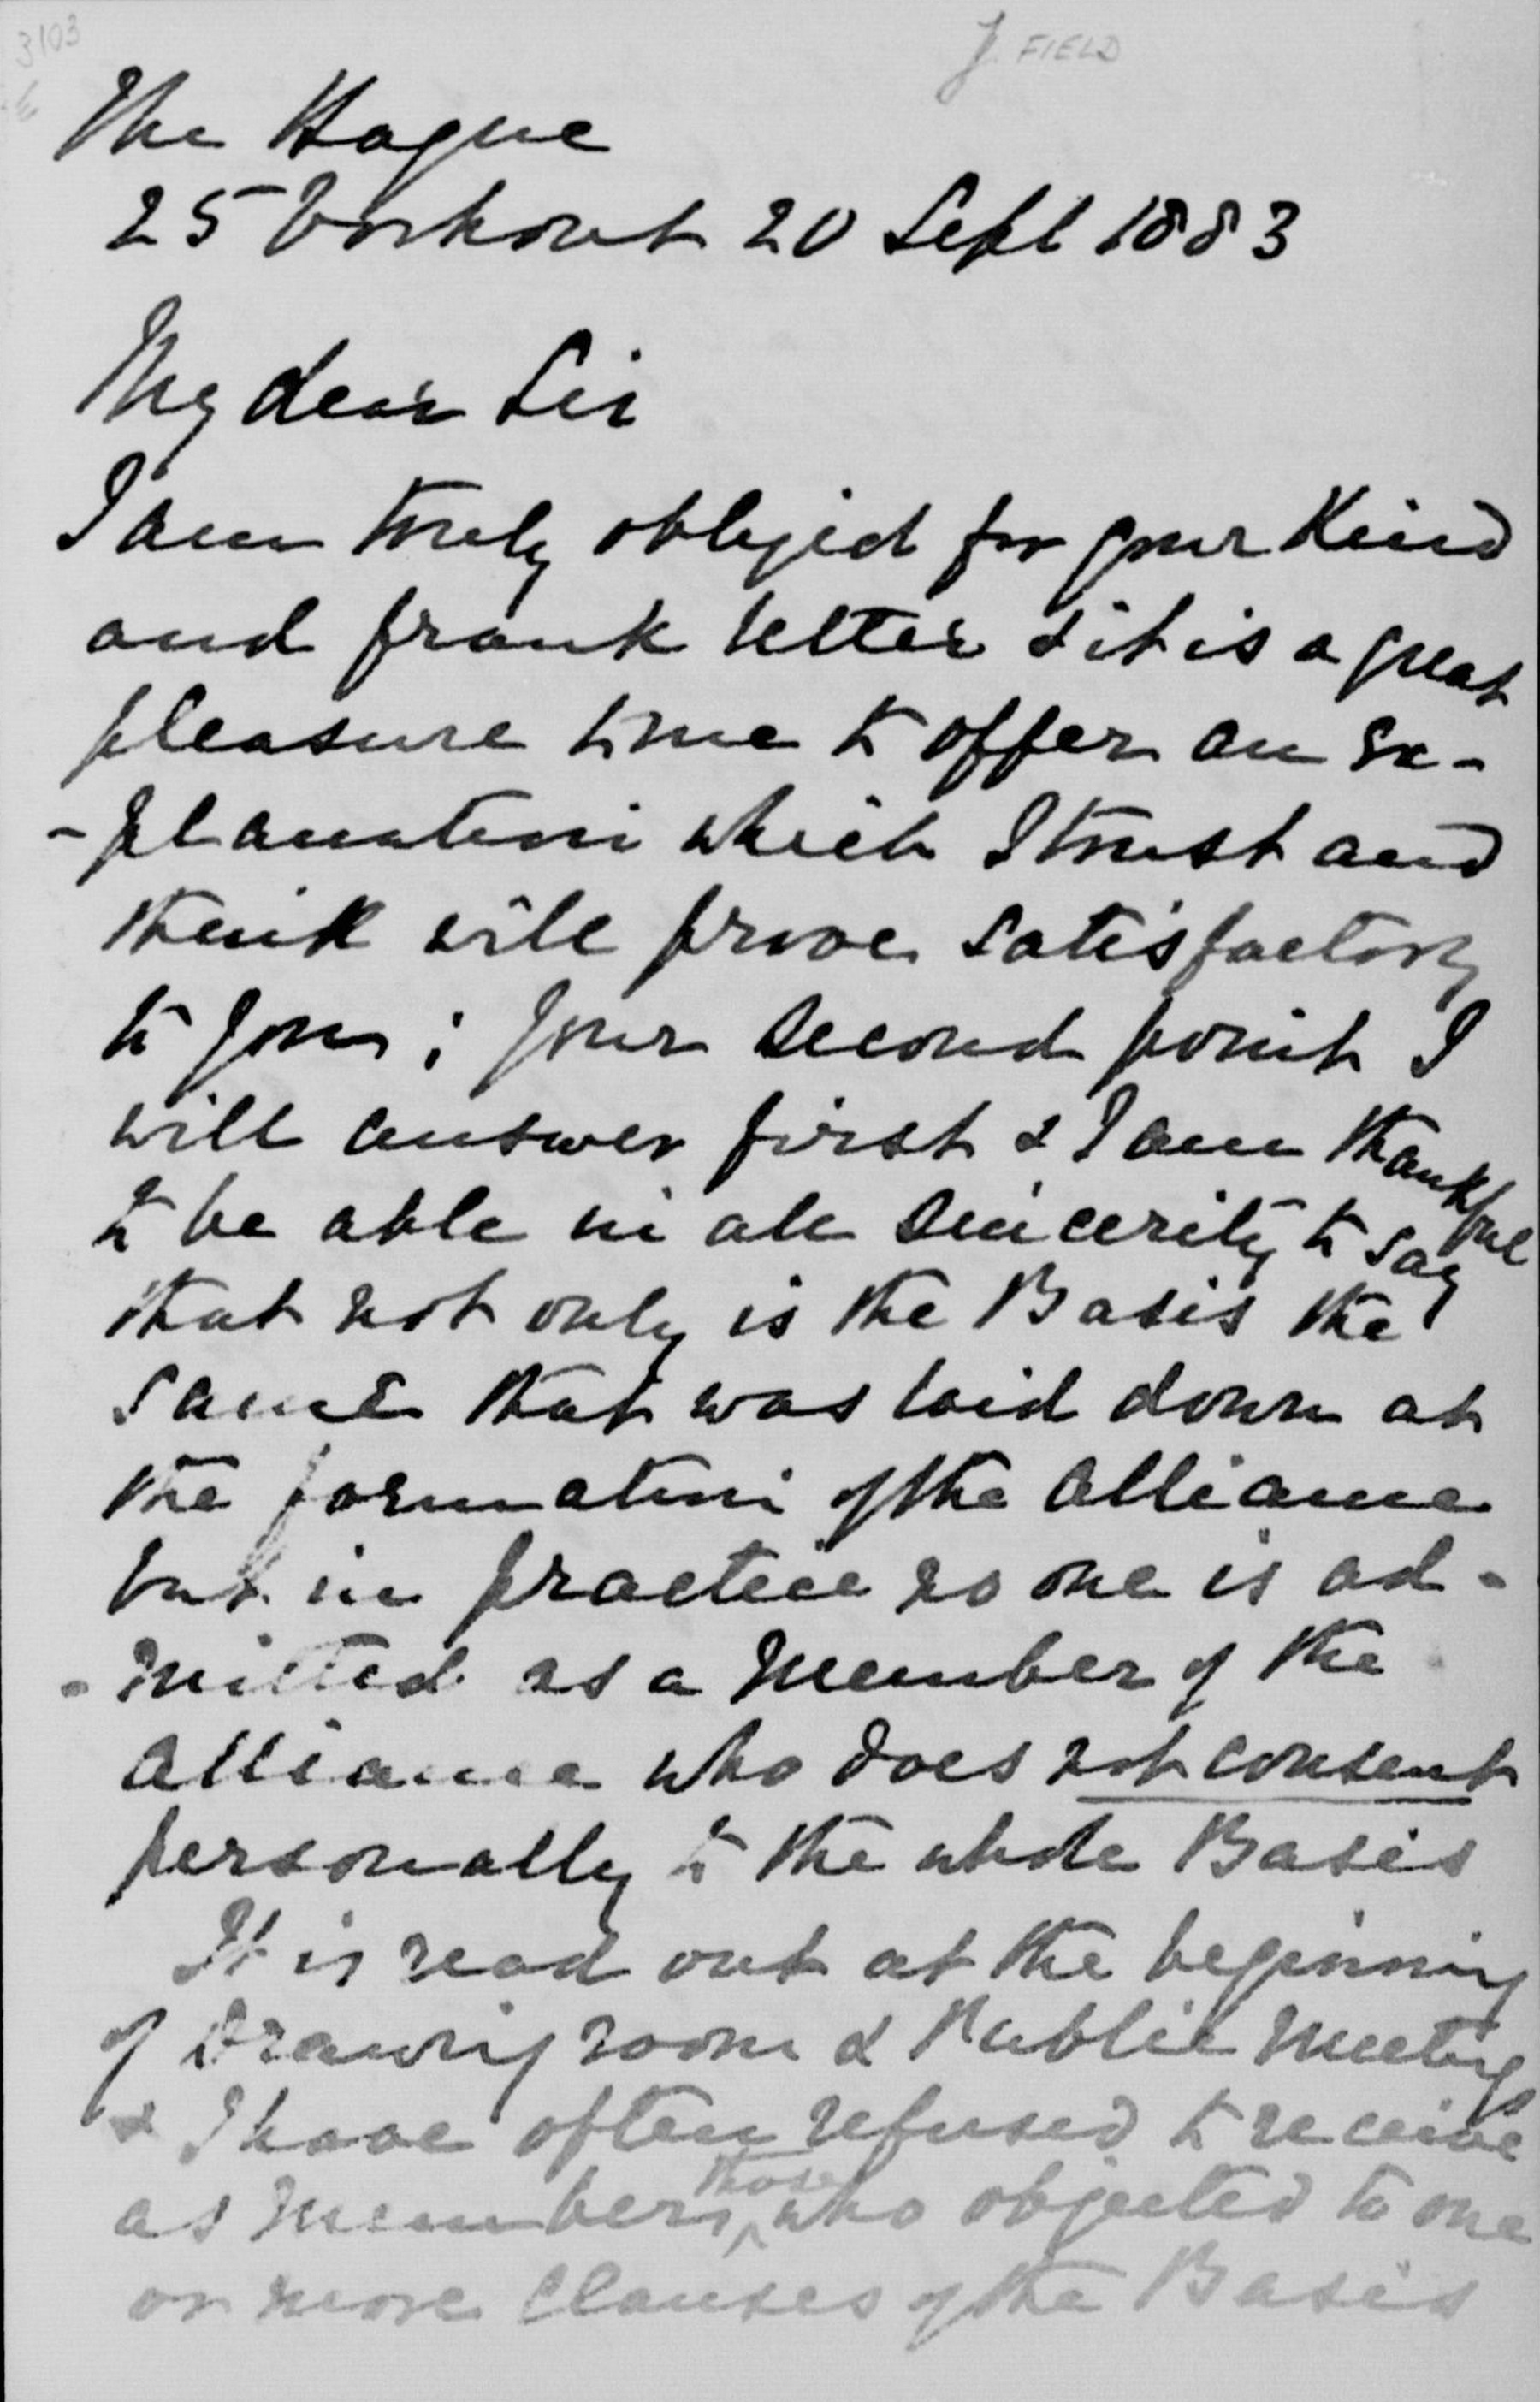 3103
J. FIELD
The Hague
25 Voorhout 20 Sept 1883
My dear Sir
I am truly obliged for your kind
and frank letter & it is a great
pleasure to me to offer an ex-
-planation which I trust and
think will prove satisfactory
to you; your second point I
will answer first & I am thankful
to be able in all sincerity to say
that not only is the Basis the
same that was laid down at
the formation of the Alliance
but in practice no one is ad-
-mitted as a member of the
Alliance who does not consent
personally to the whole Basis
It is read out at the beginning
of Drawing room & Public meetings
& I have often refused to receive
as members those who objected to one
or more Clauses of the Basis